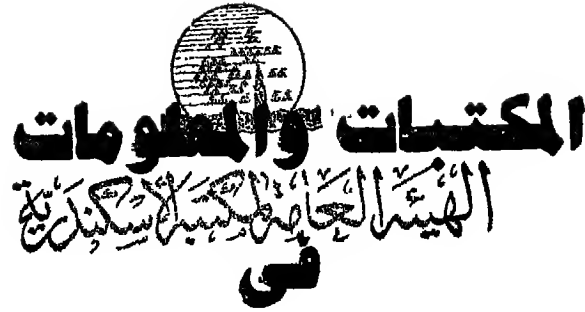 المكتبات والمعلومات
الهيئة العامة لمكتبة الإسكندرية
فى